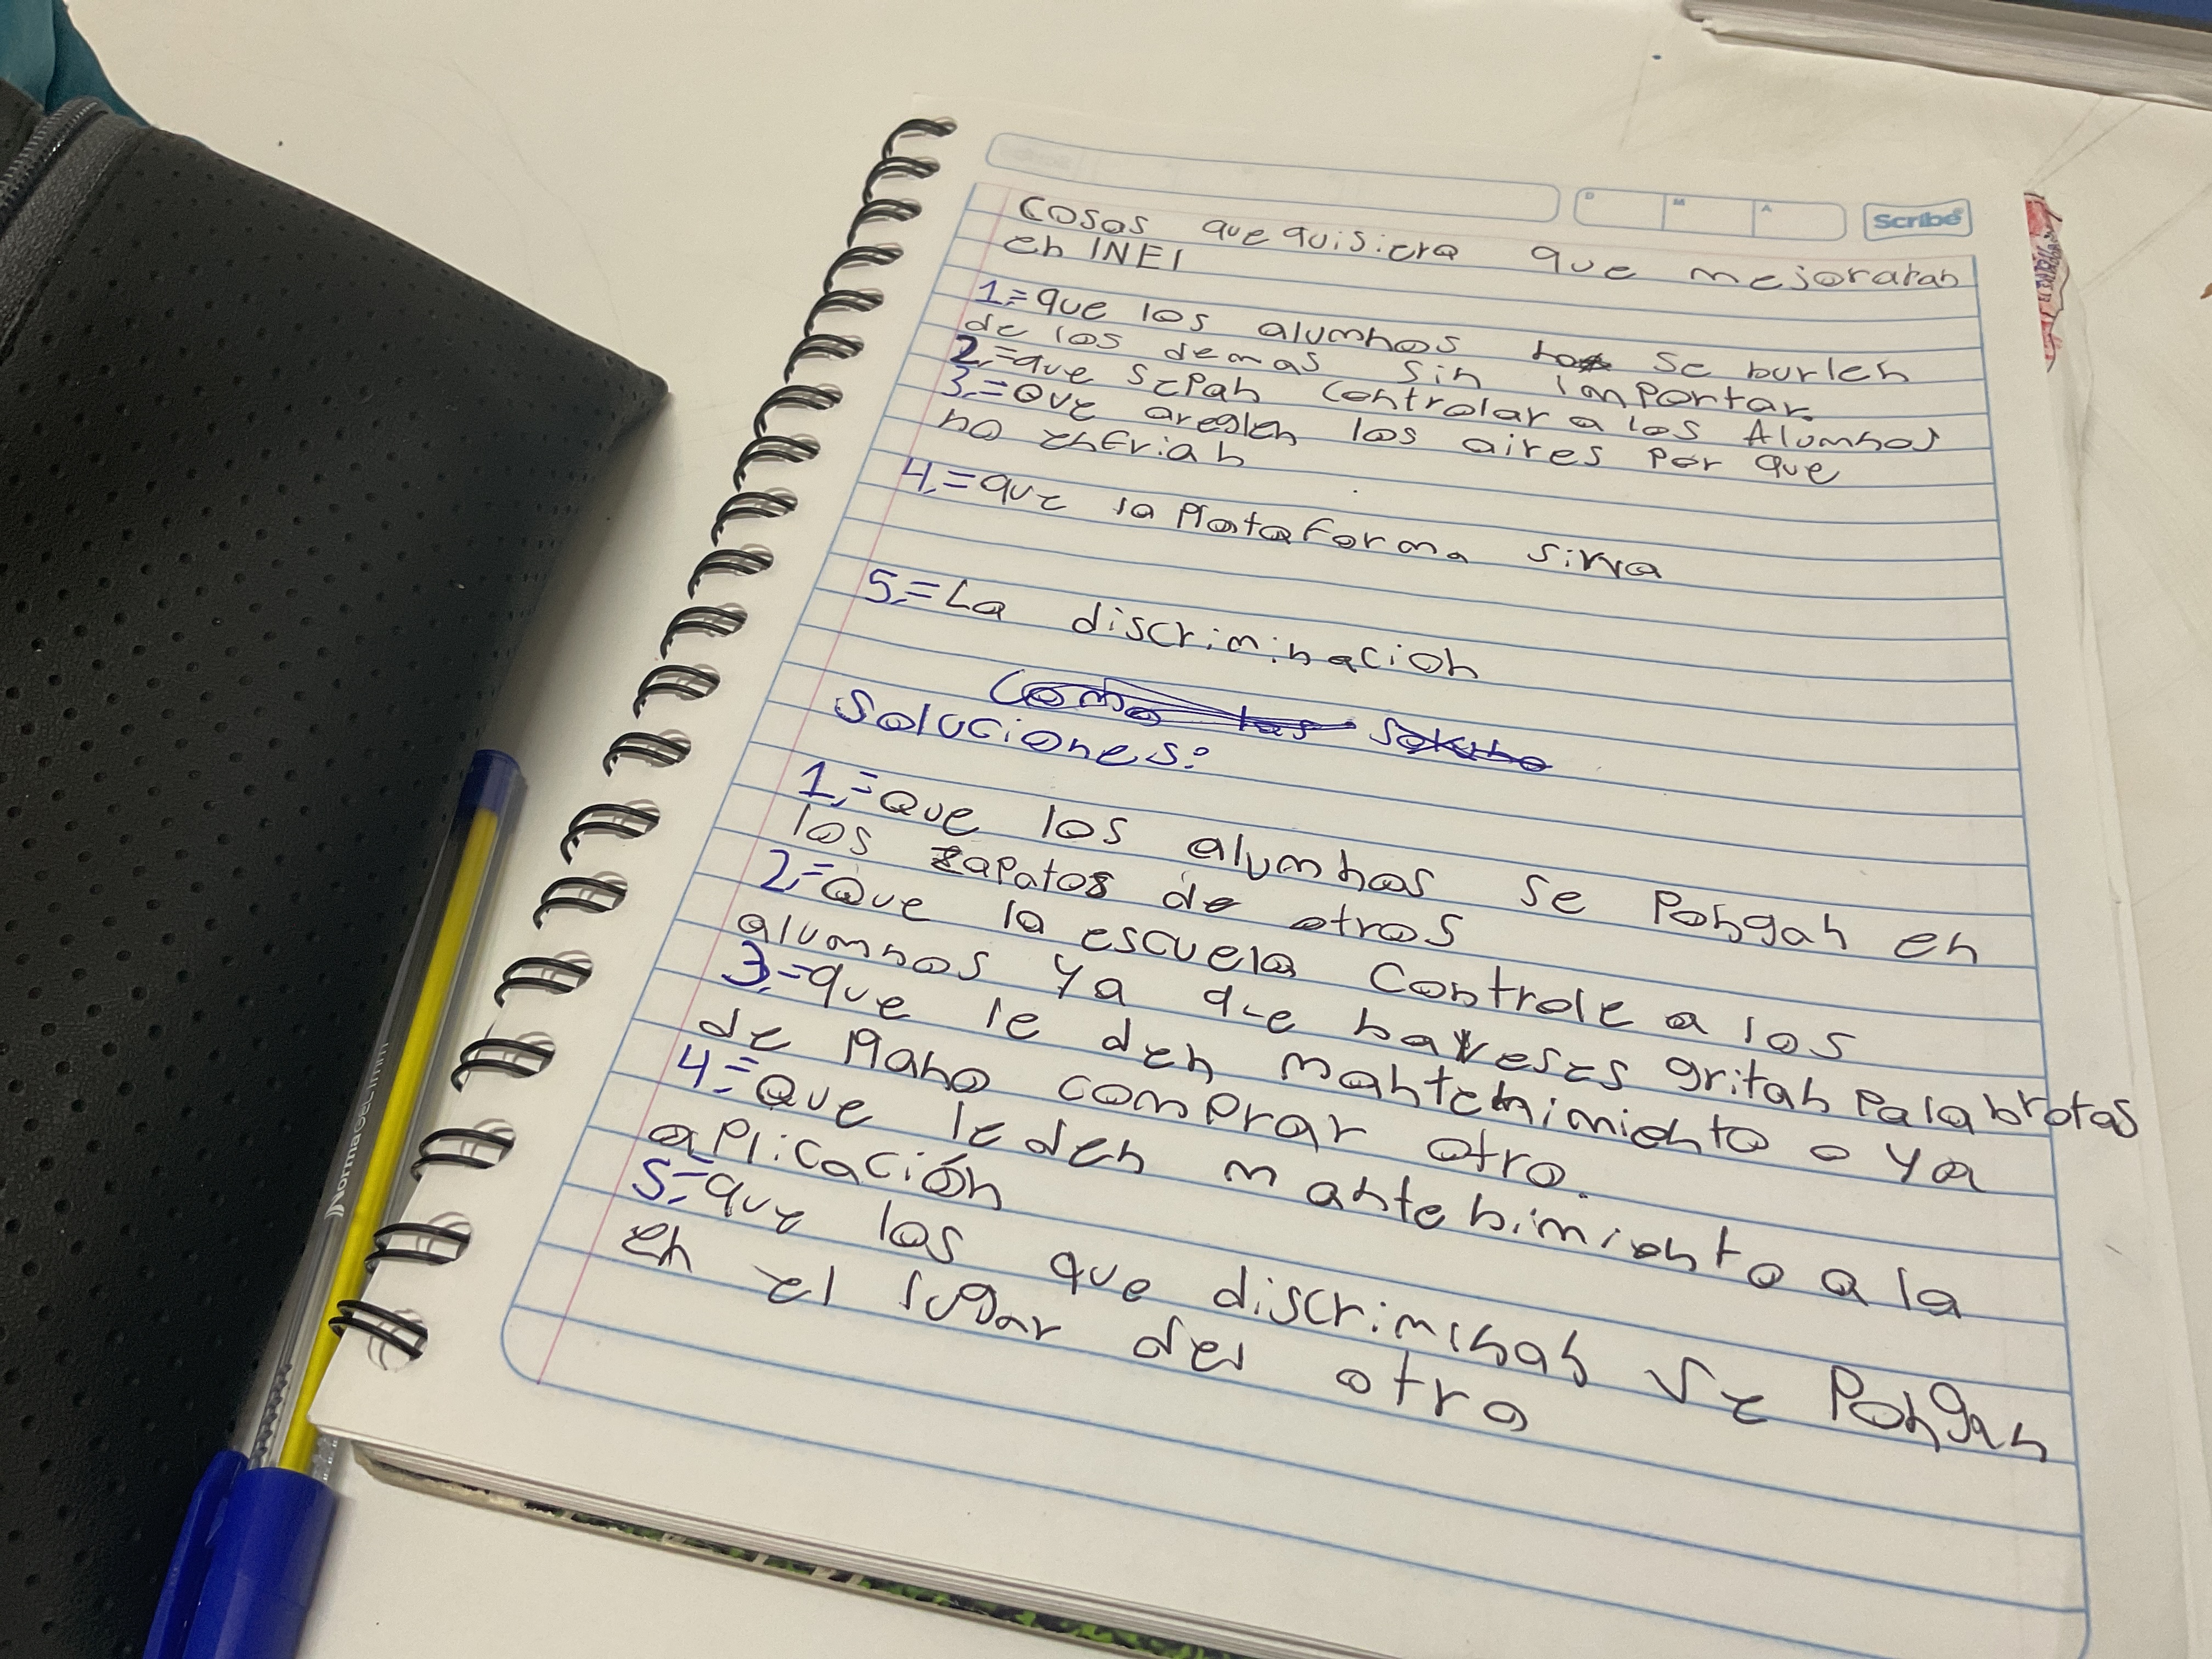 D M A
Scribe
Cosas que quisiera que mejoraran
en INEI
1.= que los alumnos se burlen
de los demas sin importar.
2.= que sepan controlar a los Alumnos
3.= Que areglen los aires por que
no enfrian
4.= que la plataforma sirva
5.= La discriminacion
Como las
Soluciones:
1.= Que los alumnos se Pongan en
los zapatos de otros
2.= Que la escuela Controle a los
alumnos ya que haveses gritan palabrotas
3.= que le den mantenimiento o ya
de plano comprar otro.
4.= Que le den mantenimiento a la
aplicación
5.= que los que discriminan se Pongan
en el lugar del otro
Norma